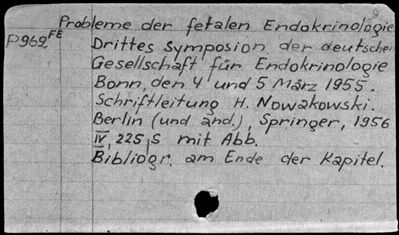 Probleme der fetalen Endokrinologie
P969 FE
Drittes Symposion der deutschen
Gesellschaft für Endokrinologie
Bonn, den 4 und 5 März 1955.
Schriftleitung H. Nowakowski.
Berlin (und and.), Springer, 1956
IV, 225 S mit Abb.
Bibliogr. am Ende der Kapitel.